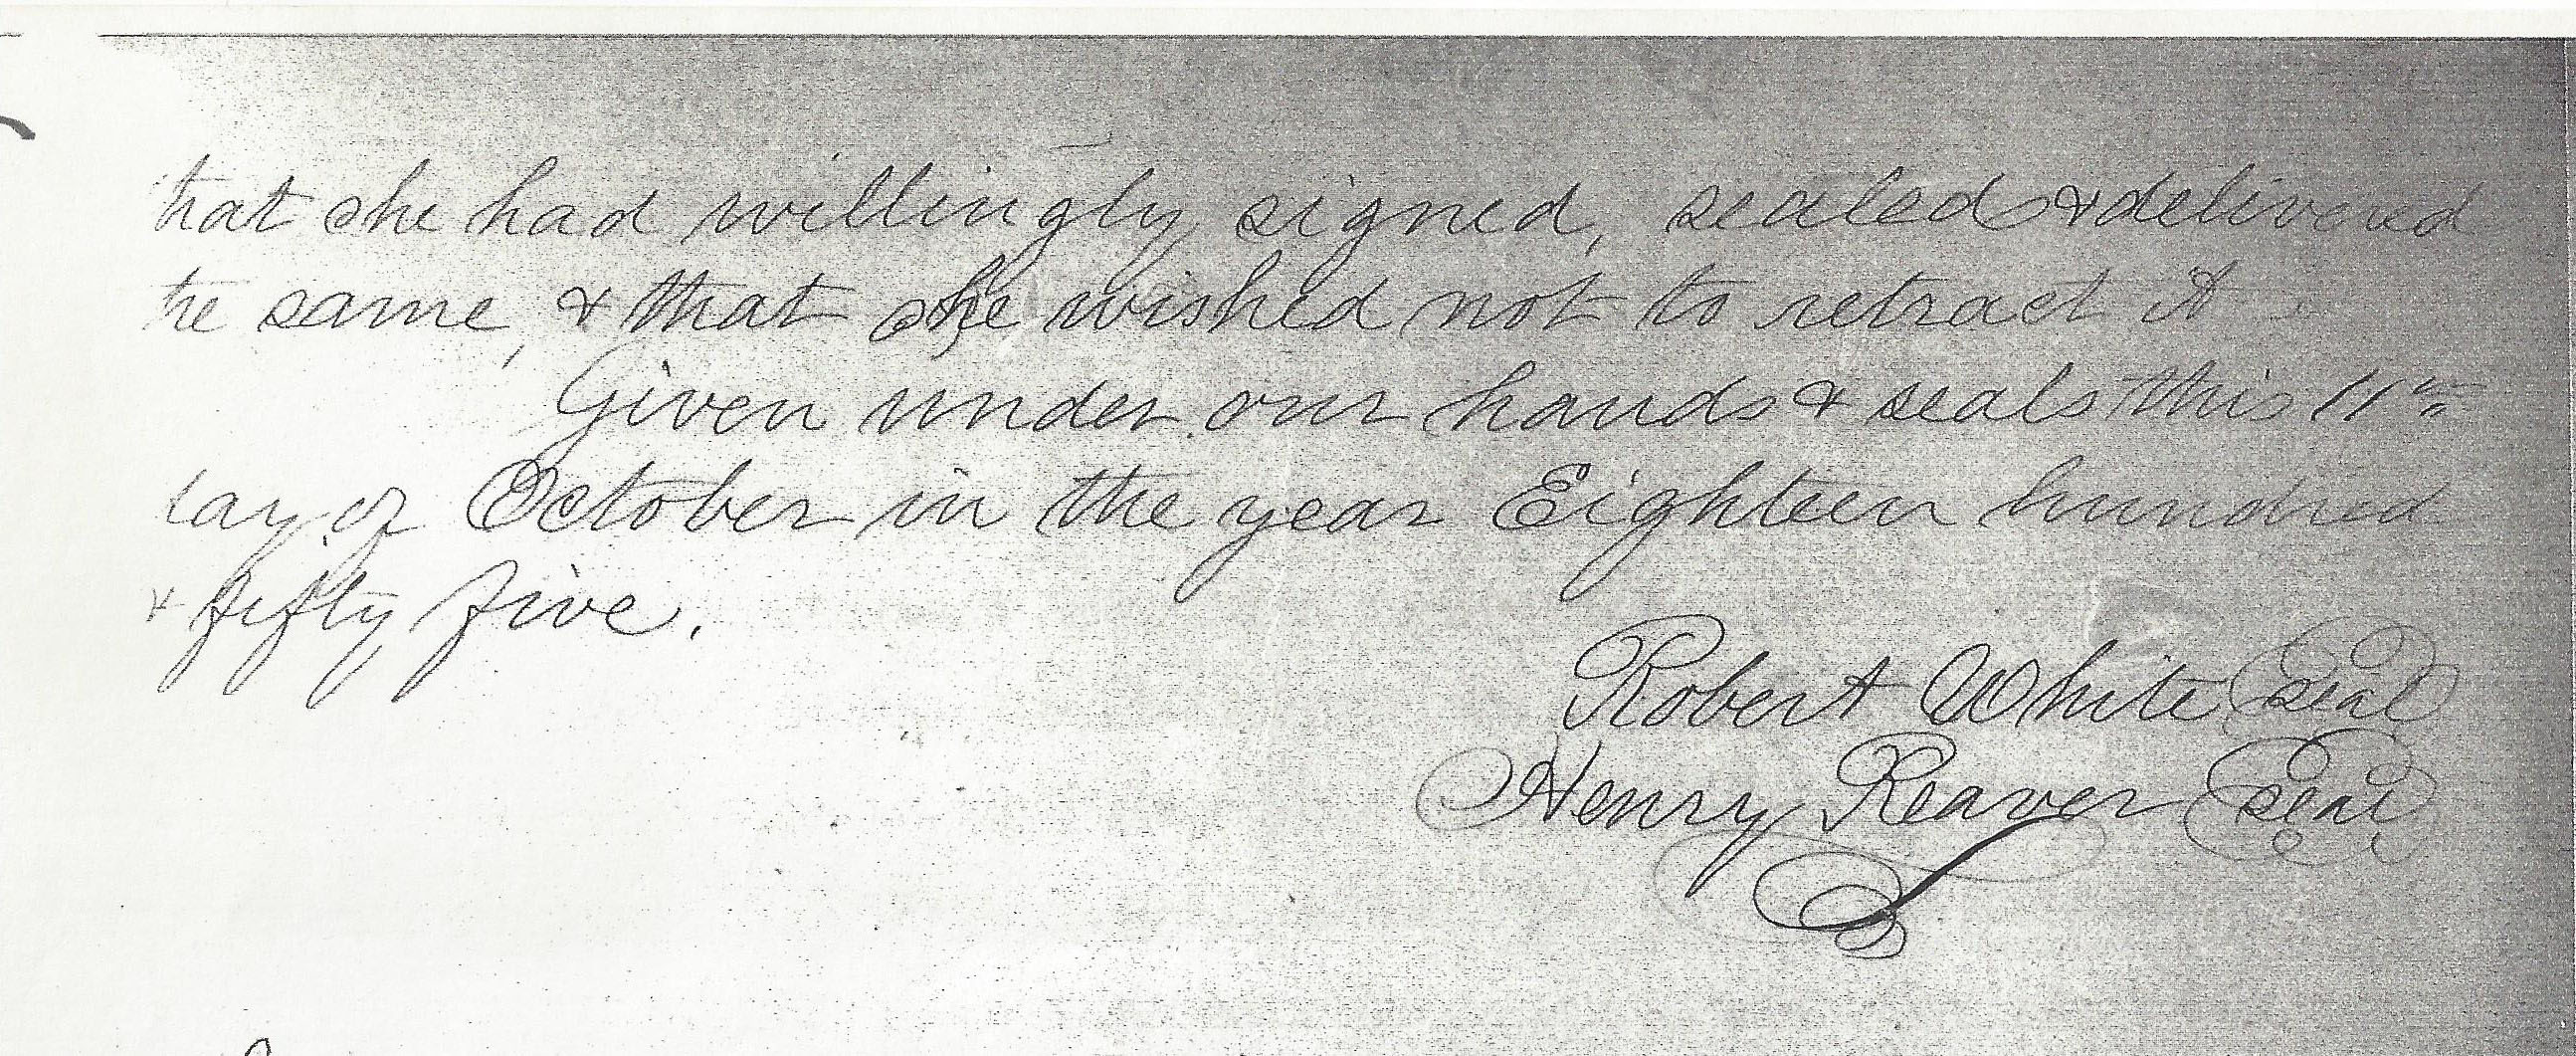 that she had willingly signed, sealed & delivered
the same, & that she wished not to retract it
Given under our hands & seals this 11th
day of October in the year Eighteen hundred
& fifty five.
Robert White Seal
Henry Reaver Seal